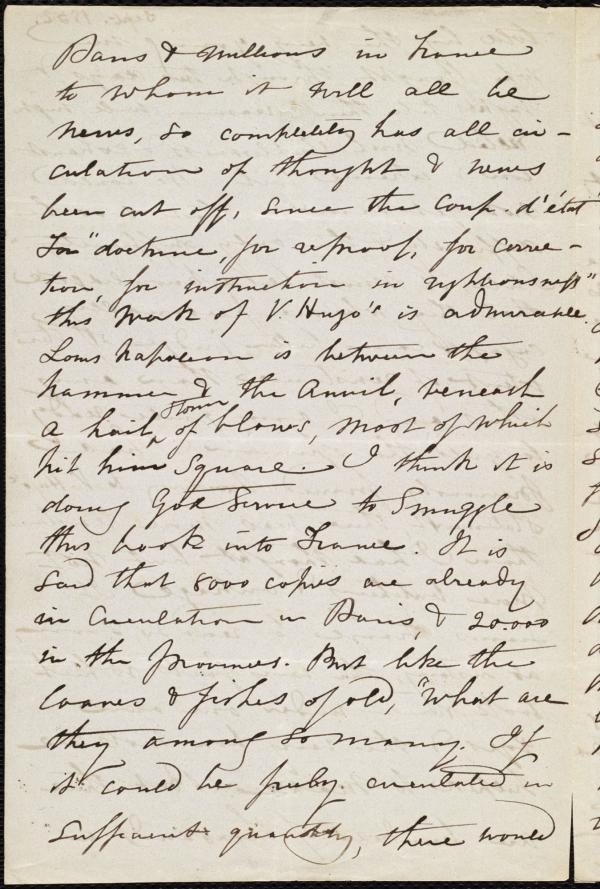 Paris & millions in France
to whom it will all be
news, so completely has all cir-
culation of thought & news
been cut off, since the Coup. d'état
For "doctrine, for reproof, for correc-
tion, for instruction in righteousness"
this work of V. Hugo's is admirable.
Louis Napoleon is between the
hammer & the Anvil, beneath
a hail storm of blows, most of which
hit him square. I think it is
doing God Service to Smuggle
this book into France. It is
said that 8000 copies are already
in Circulation in Paris, & 20.000
in the Provinces. But like the
loaves & fishes of old, "what are
they among so many. If
it could be freely circulated in
sufficient quantity, there would